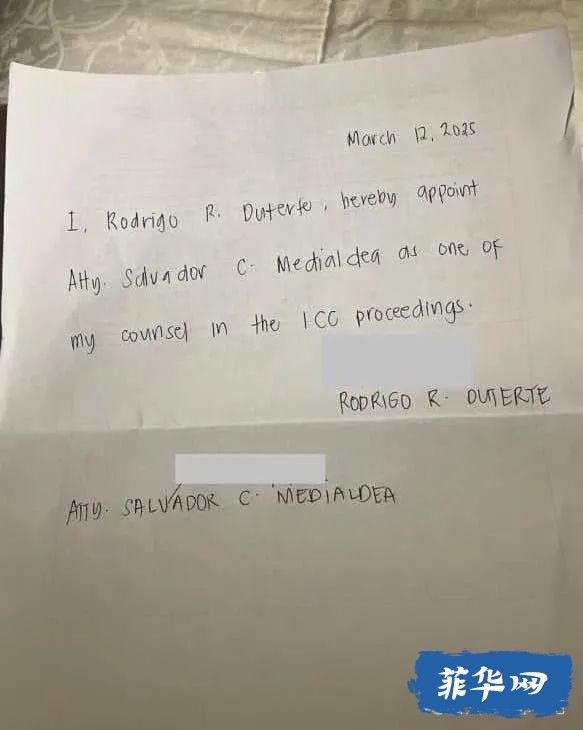 March 12, 2025
I, Rodrigo R. Duterte, hereby appoint
Atty. Salvador C. Medialdea as one of
my counsel in the ICC proceedings.
RODRIGO R. DUTERTE
ATTY. SALVADOR C. MEDIALDEA
菲华网